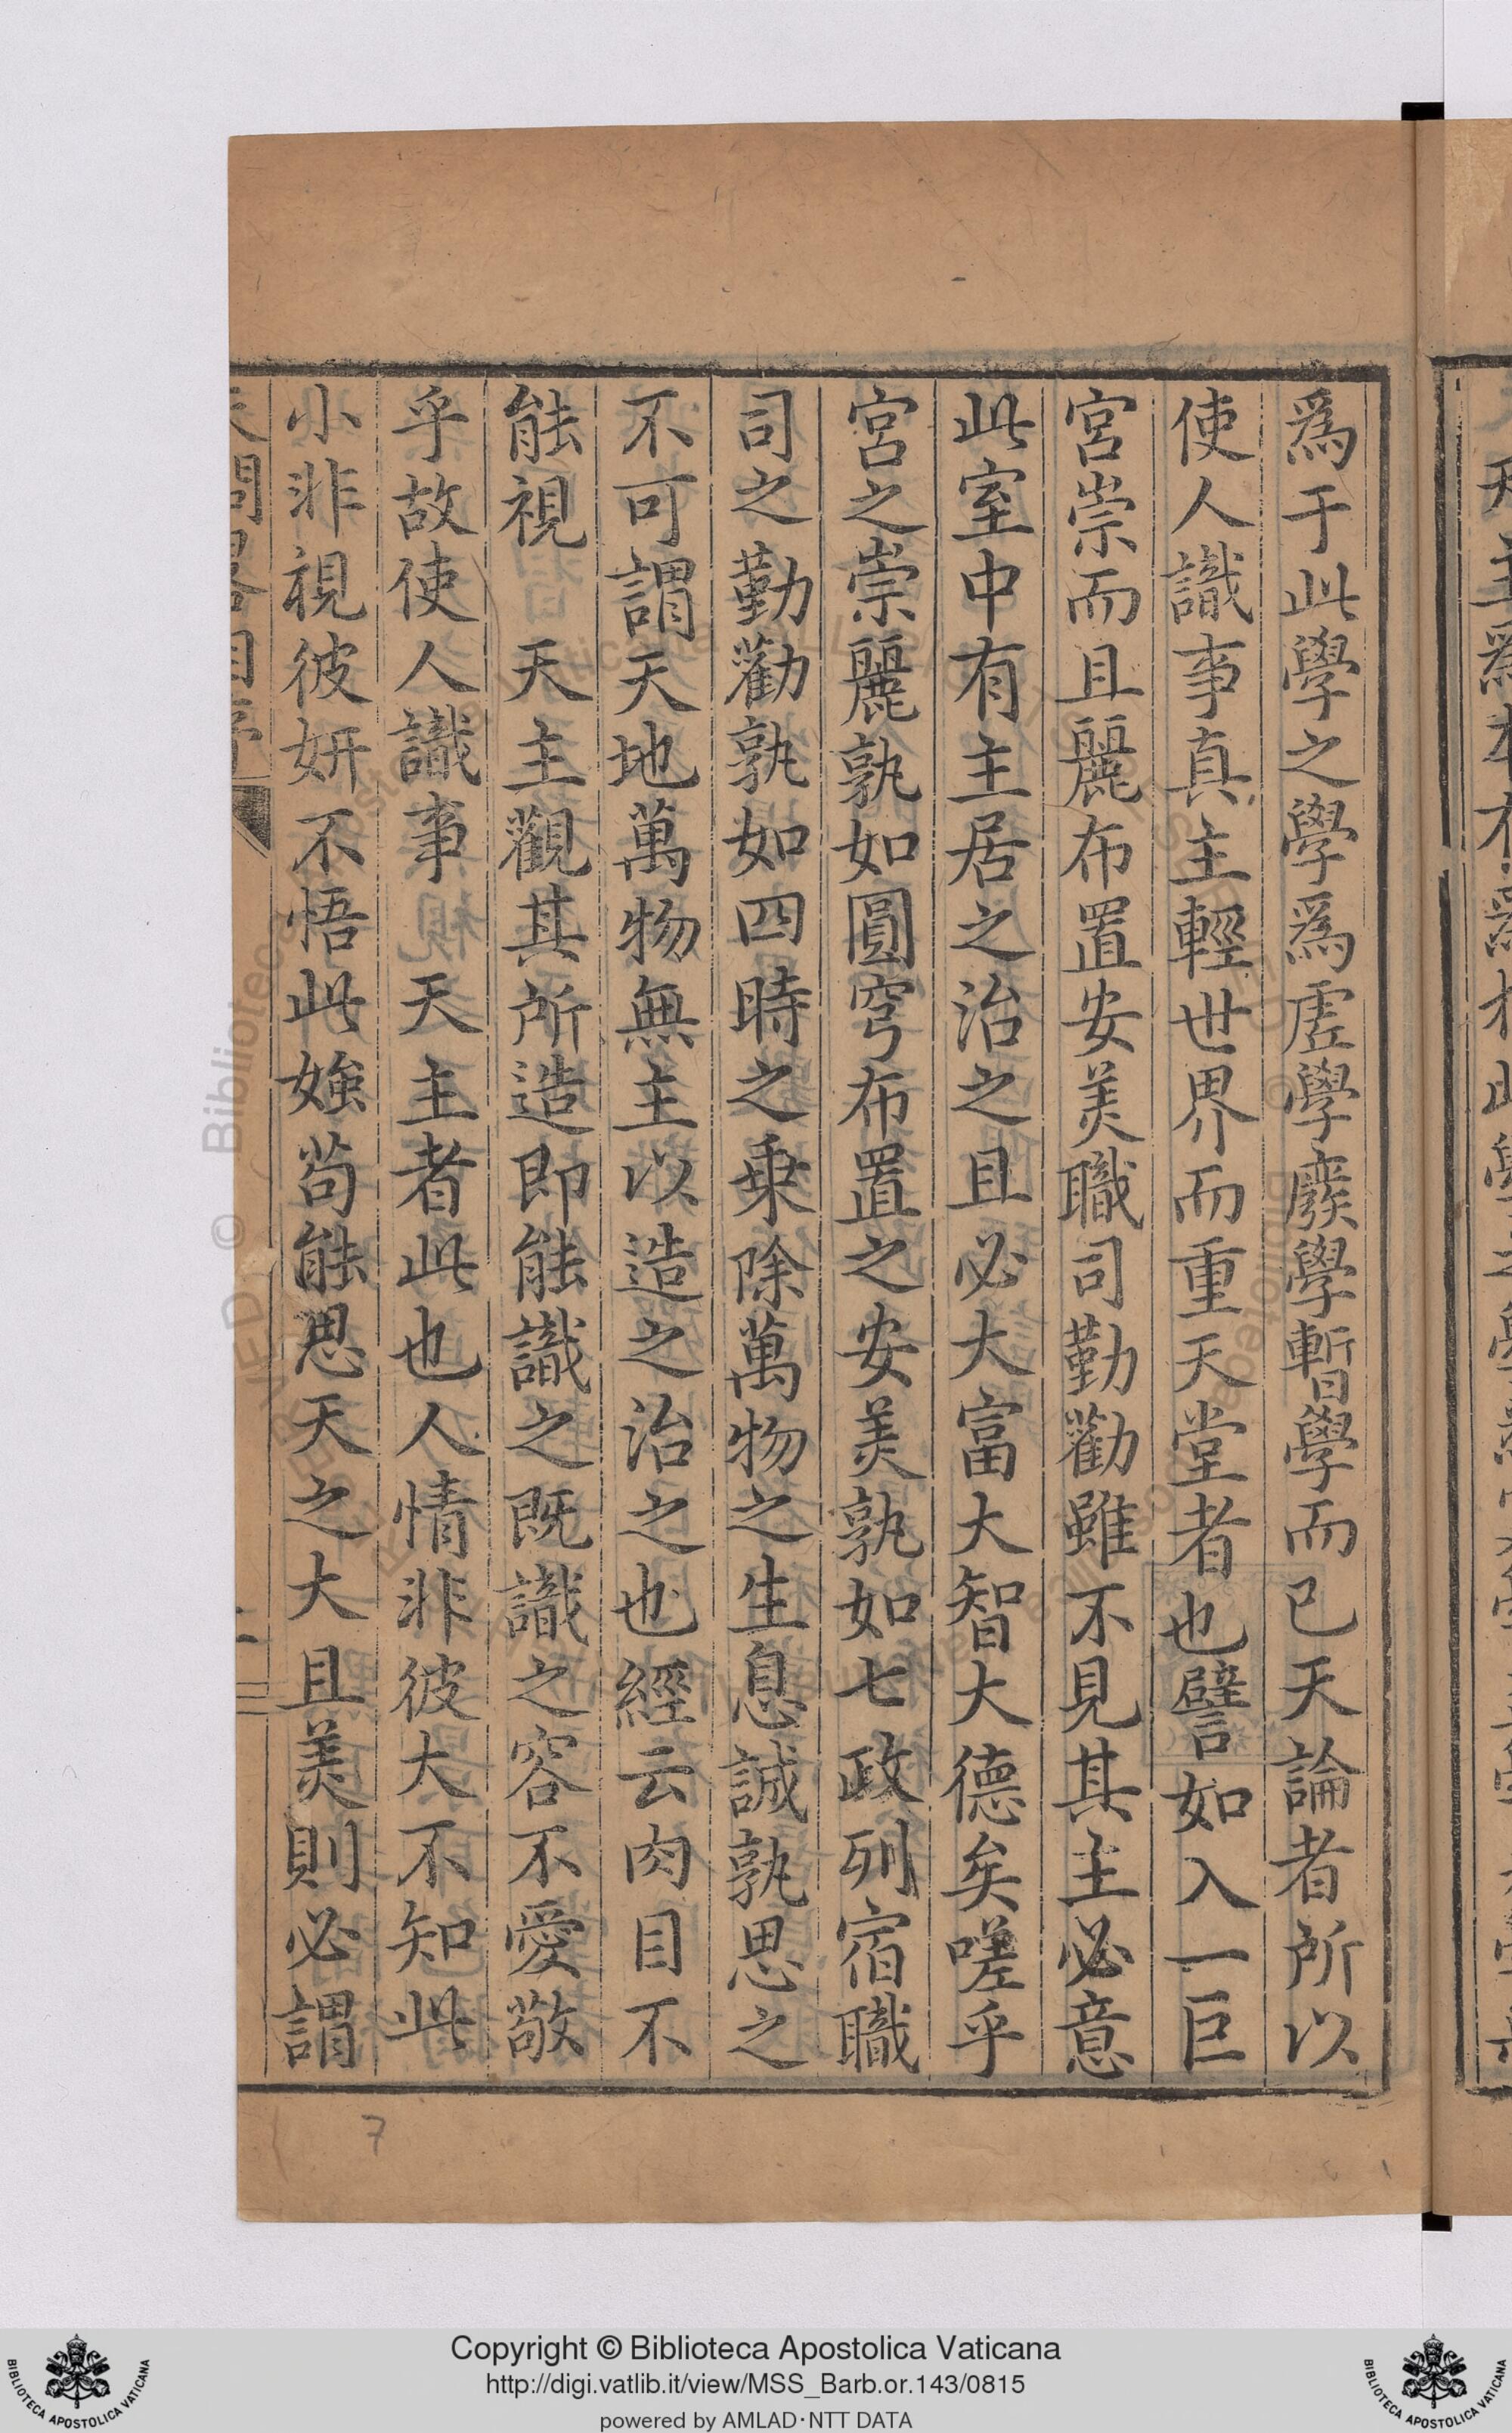 爲于此學之學爲虗學廢學暫學而已天論者所以
使人識事真主輕世界而重天堂者也譬如入一巨
宮崇而且麗布置安美職司勤勸雖不見其主必意
此室中有主居之治之且必大富大智大德矣嗟乎
宮之崇麗孰如圓穹布置之安美孰如七政列宿職
司之勤勸孰如四時之乗除萬物之生息誠孰思之
不可謂天地萬物無主以造之治之也經云肉目不
能視　天主觀其所造即能識之既識之容不愛敬
乎故使人識事　天主者此也人情非彼大不知此
小非視彼妍不悟此媸茍能思天之大且美則必謂
天問畧自序
Copyright © Biblioteca Apostolica Vaticana
http://digi.vatlib.it/view/MSS_Barb.or.143/0815
powered by AMLAD·NTT DATA
BIBLIOTECA APOSTOLICA VATICANA
BIBLIOTECA APOSTOLICA VATICANA
7